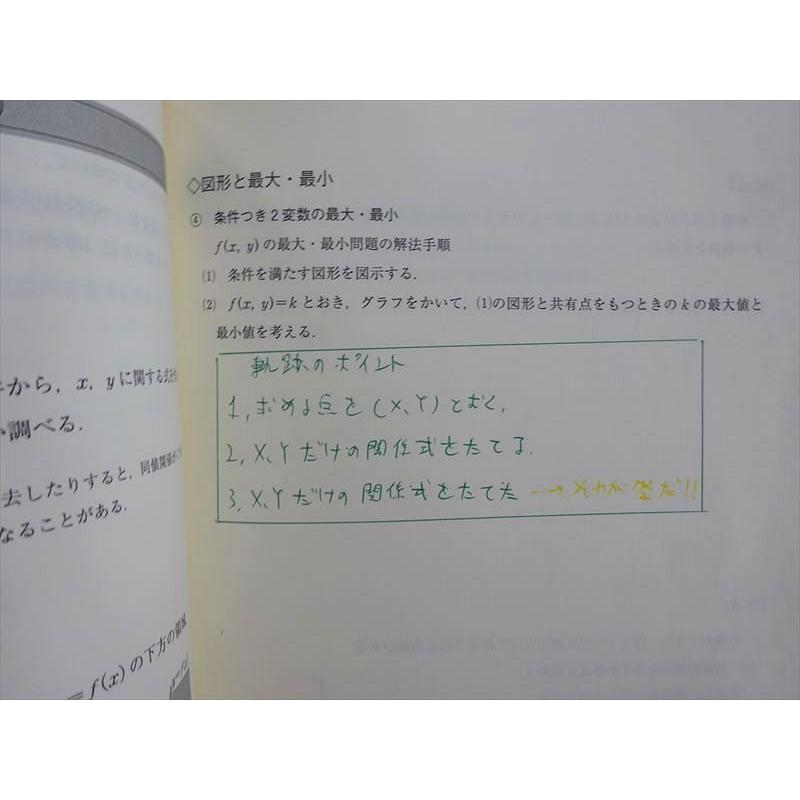 ◇図形と最大・最小
④ 条件つき2変数の最大・最小
f(x, y)の最大・最小問題の解法手順
(1) 条件を満たす図形を図示する.
(2) f(x, y)=kとおき, グラフをかいて, (1)の図形と共有点をもつときのkの最大値と
最小値を考える.
軌跡のポイント
1, 求める点を(X, Y)とおく,
2, X, Yだけの関係式をたてる.
3, X, Yだけの関係式をたてた → それが答だ!!
から, x, yに関する式を
調べる.
去したりすると, 同値関係が
なることがある.
=f(x)の下方の領域